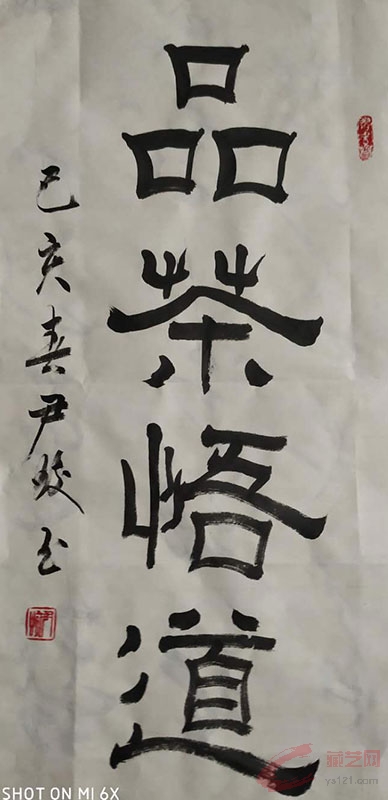 品茶悟道
己亥春尹姣书
SHOT ON MI 6X
藏艺网
ys121.com